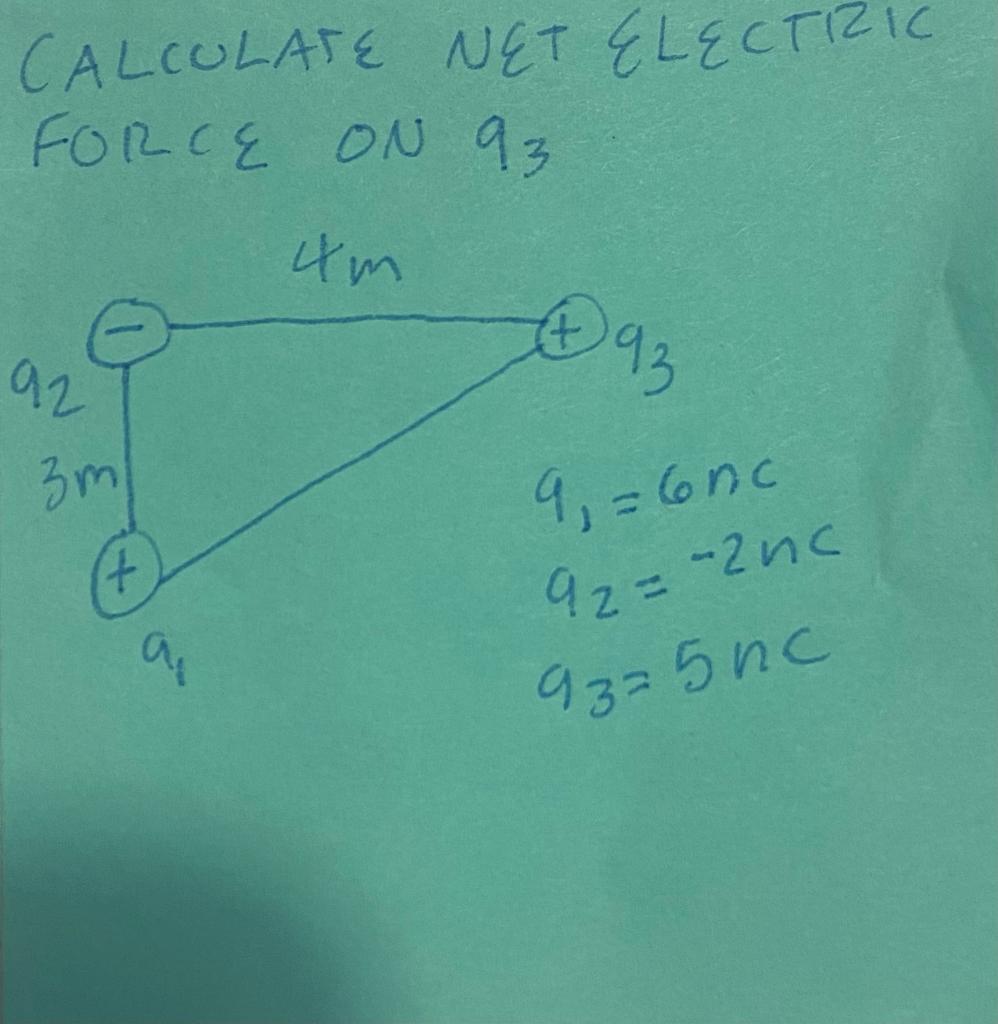 CALCULATE NET ELECTRIC
FORCE ON q3
4m
- +
q2 q3
3m
q1 = 6nc
+
q2 = -2nc
q1
q3 = 5nc